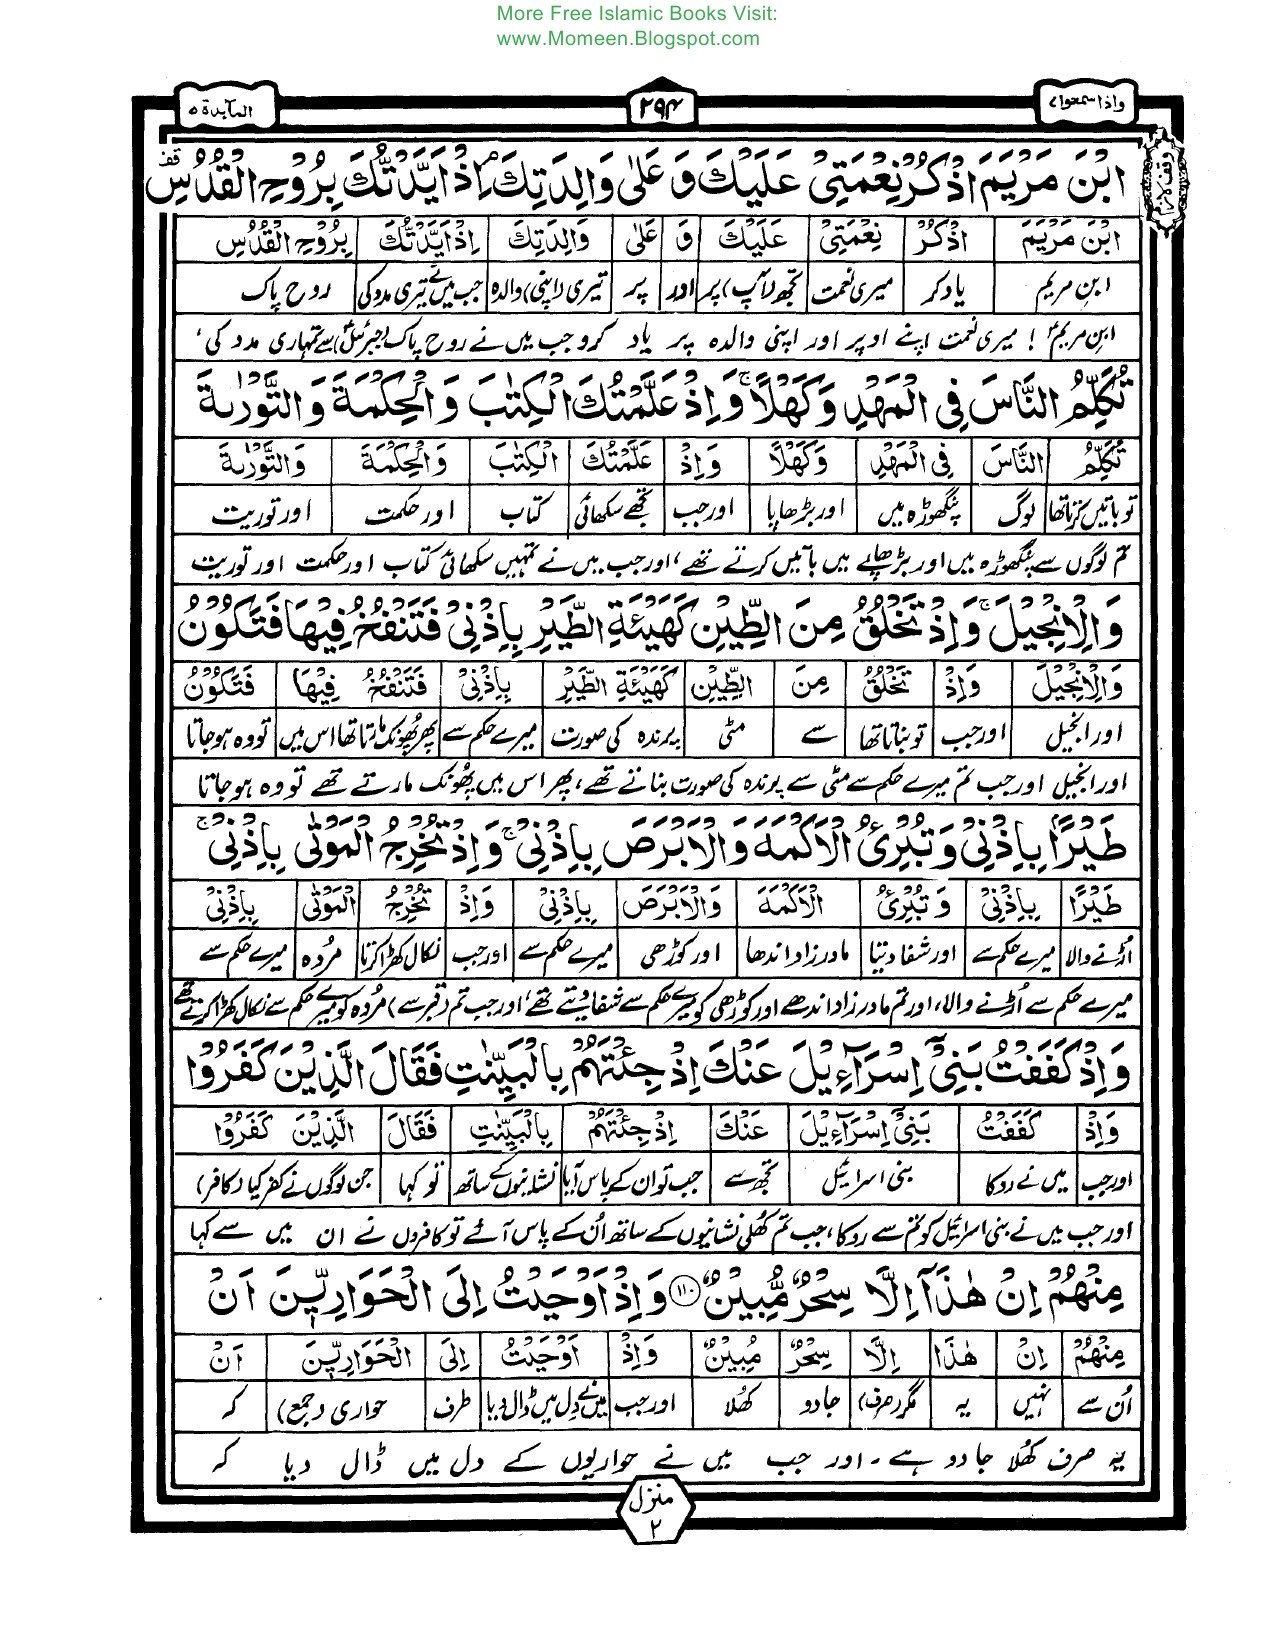 More Free Islamic Books Visit:
www.Momeen.Blogspot.com
واذا سمعوا ۷
۲۹۴
المآيدة ۵
وقف لازم
ابْنَ مَرْيَمَ اذْكُرْ نِعْمَتِيْ عَلَيْكَ وَ عَلٰى وَالِدَتِكَ ۘ اِذْ اَيَّدْتُّكَ بِرُوْحِ الْقُدُسِ ۫ قف
ابْنَ مَرْيَمَ اذْكُرْ نِعْمَتِيْ عَلَيْكَ وَ عَلٰى وَالِدَتِكَ اِذْ اَيَّدْتُّكَ بِرُوْحِ الْقُدُسِ
ابنِ مریم یاد کر میری نعمت تجھ (آپ) پر اور پر تیری (اپنی) والدہ جب میں نے تیری مدد کی روحِ پاک
ابنِ مریمؑ ! میری نعمت اپنے اوپر اور اپنی والدہ پر یاد کرو جب میں نے روحِ پاک (جبرئیلؑ) سے تمہاری مدد کی،
تُكَلِّمُ النَّاسَ فِي الْمَهْدِ وَكَهْلًا ۚ وَاِذْ عَلَّمْتُكَ الْكِتٰبَ وَالْحِكْمَةَ وَالتَّوْرٰىةَ
تُكَلِّمُ النَّاسَ فِي الْمَهْدِ وَكَهْلًا وَاِذْ عَلَّمْتُكَ الْكِتٰبَ وَالْحِكْمَةَ وَالتَّوْرٰىةَ
تو باتیں کرتا تھا لوگ پنگھوڑہ میں اور بڑھاپا اور جب تجھے سکھائی کتاب اور حکمت اور توریت
تم لوگوں سے پنگھوڑہ میں اور بڑھاپے میں باتیں کرتے تھے، اور جب میں نے تمہیں سکھائی کتاب اور حکمت اور توریت
وَالْاِنْجِيْلَ ۚ وَاِذْ تَخْلُقُ مِنَ الطِّيْنِ كَهَيْئَةِ الطَّيْرِ بِاِذْنِيْ فَتَنْفُخُ فِيْهَا فَتَكُوْنُ
وَالْاِنْجِيْلَ وَاِذْ تَخْلُقُ مِنَ الطِّيْنِ كَهَيْئَةِ الطَّيْرِ بِاِذْنِيْ فَتَنْفُخُ فِيْهَا فَتَكُوْنُ
اور انجیل اور جب تو بناتا تھا سے مٹی پرندہ کی صورت میرے حکم سے پھر پھونک مارتا تھا اس میں تو وہ ہوجاتا
اور انجیل اور جب تم میرے حکم سے مٹی سے پرندہ کی صورت بناتے تھے، پھر اس میں پھُونک مارتے تھے تو وہ ہوجاتا
طَيْرًۢا بِاِذْنِيْ وَتُبْرِئُ الْاَكْمَهَ وَالْاَبْرَصَ بِاِذْنِيْ ۚ وَاِذْ تُخْرِجُ الْمَوْتٰى بِاِذْنِيْ ۚ
طَيْرًا بِاِذْنِيْ وَتُبْرِئُ الْاَكْمَهَ وَالْاَبْرَصَ بِاِذْنِيْ وَاِذْ تُخْرِجُ الْمَوْتٰى بِاِذْنِيْ
اُڑنے والا میرے حکم سے اور شفا دیتا مادرزاد اندھا اور کوڑھی میرے حکم سے اور جب نکال کھڑا کرتا مُردہ میرے حکم سے
میرے حکم سے اُڑنے والا، اور تم مادرزاد اندھے اور کوڑھی کو میرے حکم سے شفا دیتے تھے، اور جب تم (قبر سے) مُردہ کو میرے حکم سے نکال کھڑا کرتے تھے
وَاِذْ كَفَفْتُ بَنِيْٓ اِسْرَآءِيْلَ عَنْكَ اِذْ جِئْتَهُمْ بِالْبَيِّنٰتِ فَقَالَ الَّذِيْنَ كَفَرُوْا
وَاِذْ كَفَفْتُ بَنِيْٓ اِسْرَآءِيْلَ عَنْكَ اِذْ جِئْتَهُمْ بِالْبَيِّنٰتِ فَقَالَ الَّذِيْنَ كَفَرُوْا
اور جب میں نے روکا بنی اسرائیل تجھ سے جب تو ان کے پاس آیا نشانیوں کے ساتھ تو کہا جن لوگوں نے کفر کیا (کافر)
اور جب میں نے بنی اسرائیل کو تم سے روکا، جب تم کھُلی نشانیوں کے ساتھ اُن کے پاس آئے تو کافروں نے ان میں سے کہا
مِنْهُمْ اِنْ هٰذَآ اِلَّا سِحْرٌ مُّبِيْنٌ ۱۱۰ وَاِذْ اَوْحَيْتُ اِلَى الْحَوَارِيّٖنَ اَنْ
مِنْهُمْ اِنْ هٰذَا اِلَّا سِحْرٌ مُبِيْنٌ وَاِذْ اَوْحَيْتُ اِلَى الْحَوَارِيّٖنَ اَنْ
اُن سے نہیں یہ مگر (صرف) جادو کھُلا اور جب میں نے دل میں ڈال دیا طرف حواری (جمع) کہ
یہ صرف کھُلا جادو ہے۔ اور جب میں نے حواریوں کے دل میں ڈال دیا کہ
منزل ۲